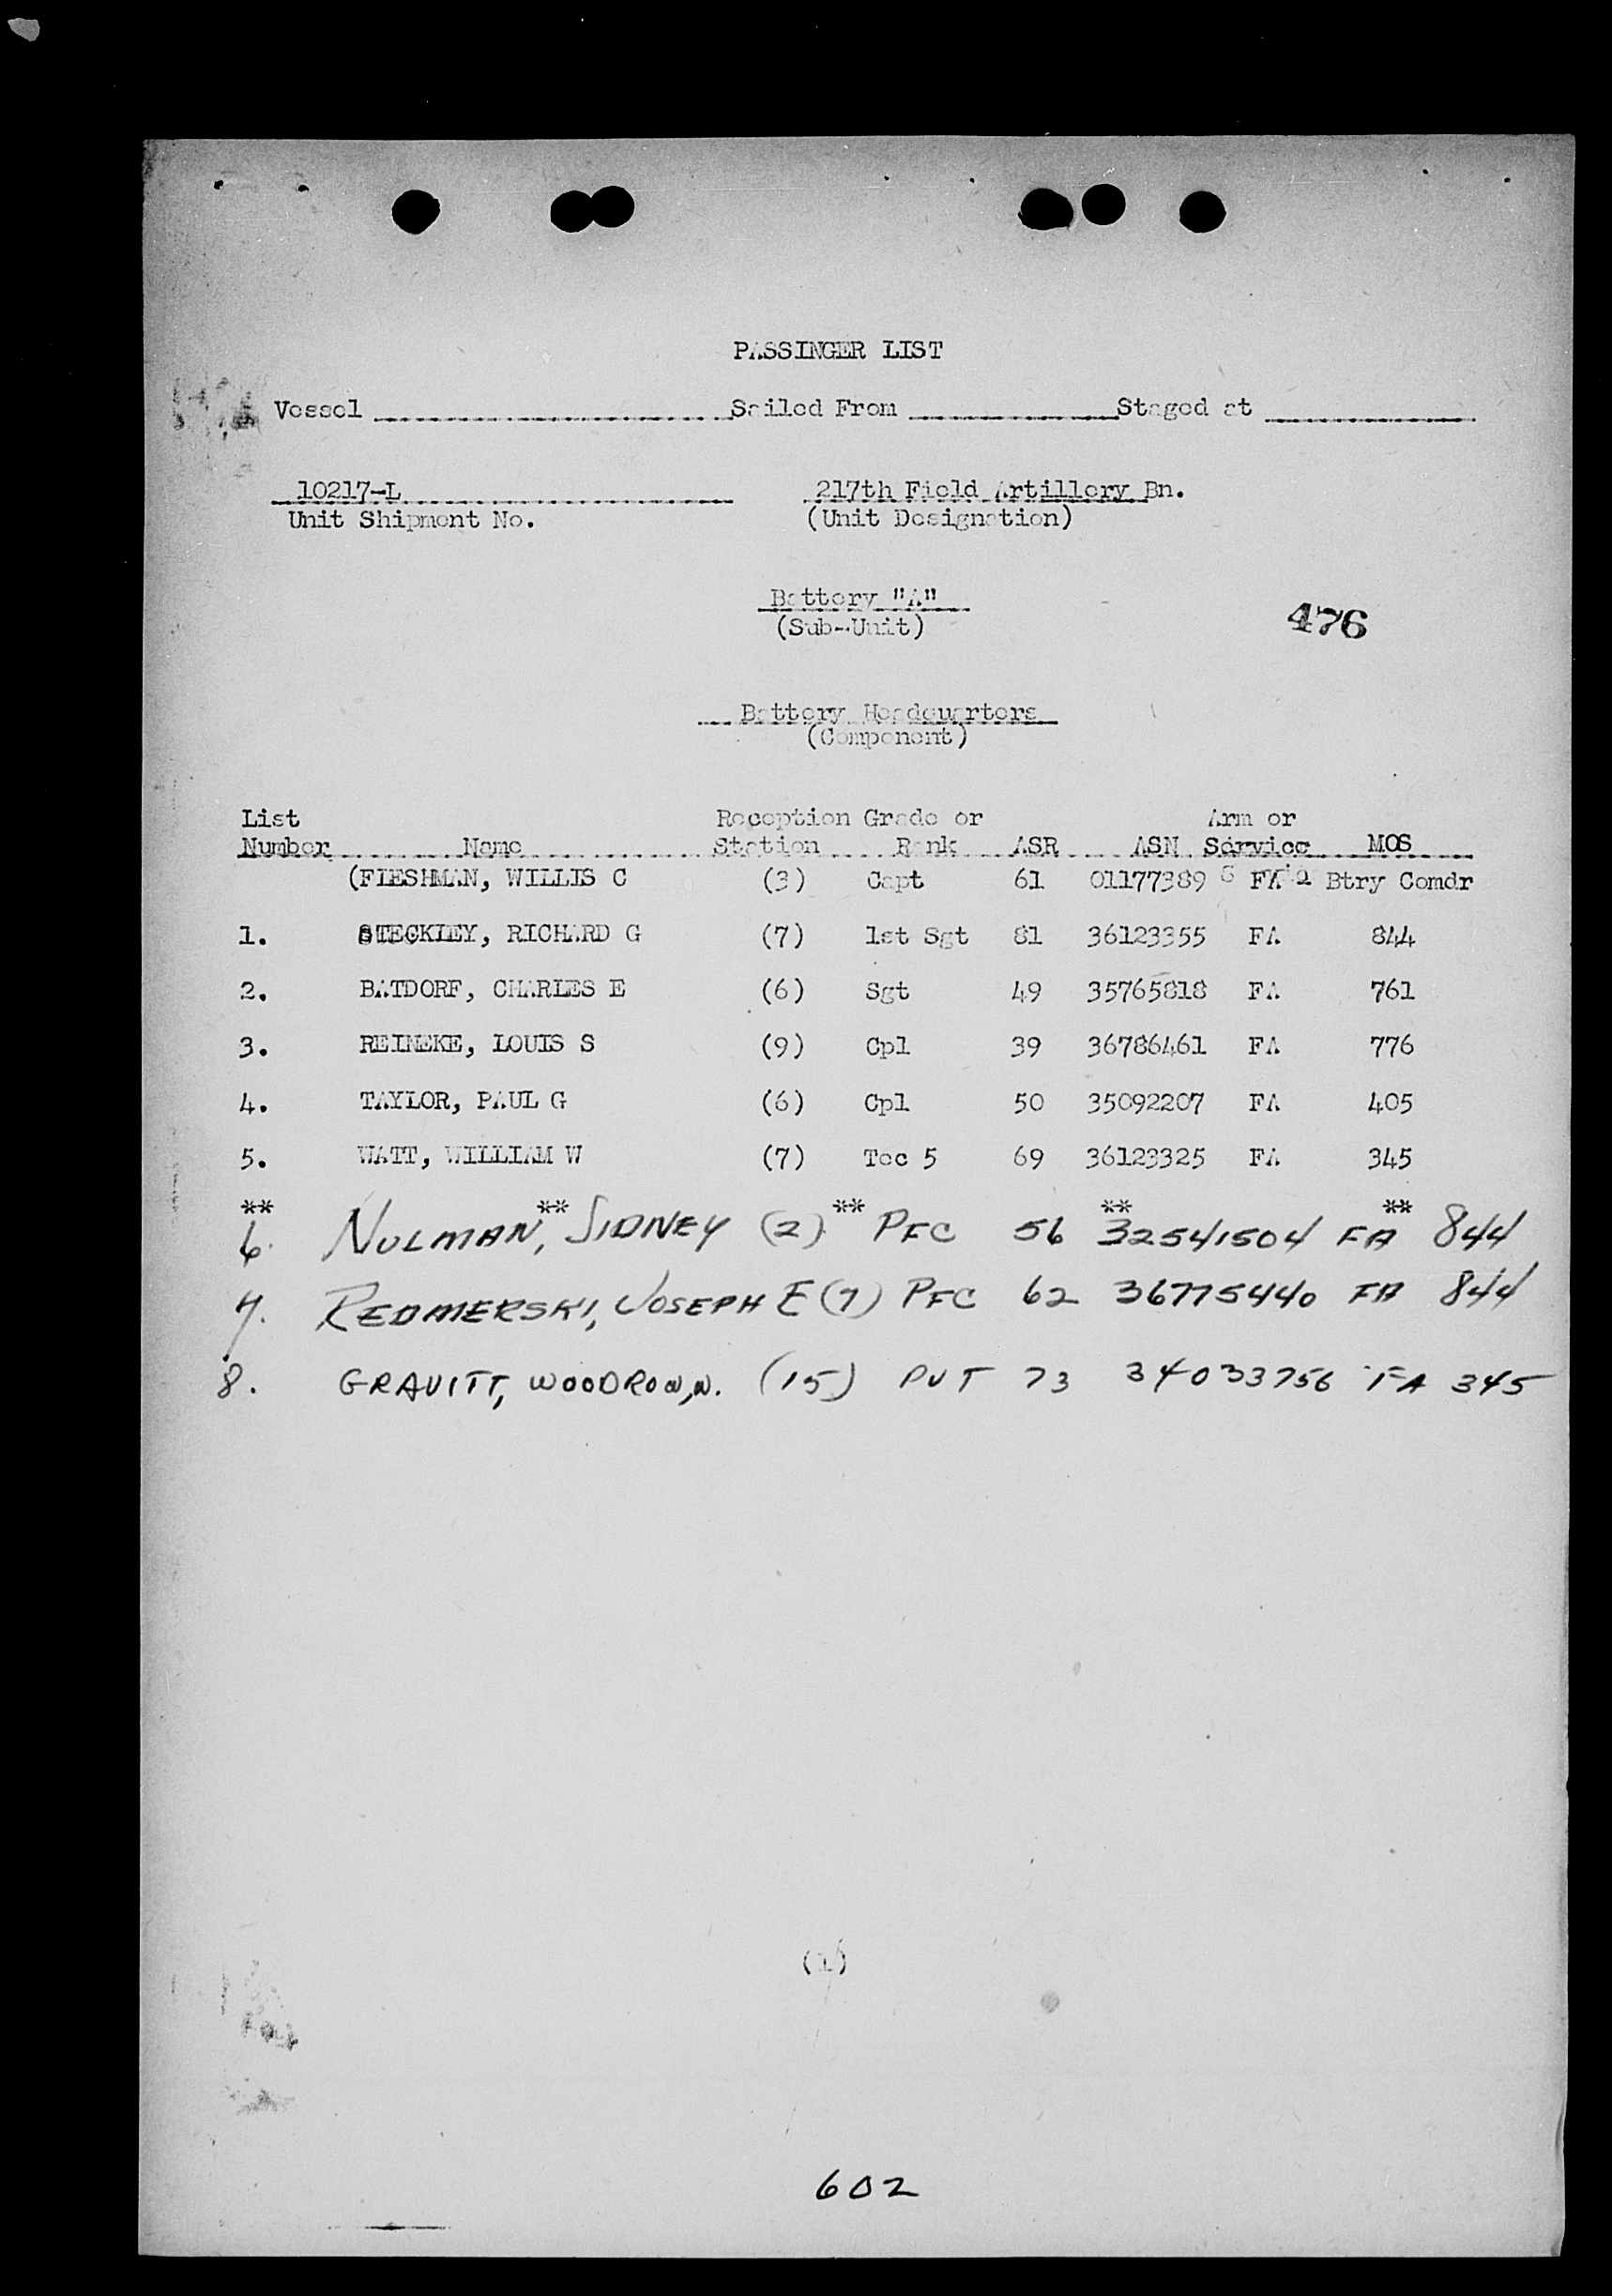 PASSINGER LIST
Vessel Sailed From Staged at
10217-L 217th Field Artillery Bn.
Unit Shipment No. (Unit Designation)
Battery "A"
(Sub-Unit)
476
Battery Headquarters
(Component)
List Reception Grade or Arm or
Number Name Station Rank ASR ASN Service MOS
(FIESHMAN, WILLIS C (3) Capt 61 01177389 FA Btry Comdr
1. STECKLEY, RICHARD G (7) 1st Sgt 81 36123355 FA 844
2. BATDORF, CHARLES E (6) Sgt 49 35765818 FA 761
3. REINEKE, LOUIS S (9) Cpl 39 36786461 FA 776
4. TAYLOR, PAUL G (6) Cpl 50 35092207 FA 405
5. WATT, WILLIAM W (7) Tec 5 69 36123325 FA 345
** ** ** ** **
6. NULMAN, SIDNEY (2) PFC 56 32541504 FA 844
7. REDMERSKI, JOSEPH E (7) PFC 62 36775440 FA 844
8. GRAVITT, WOODROW, N. (15) PVT 73 34033756 FA 345
(1)
602